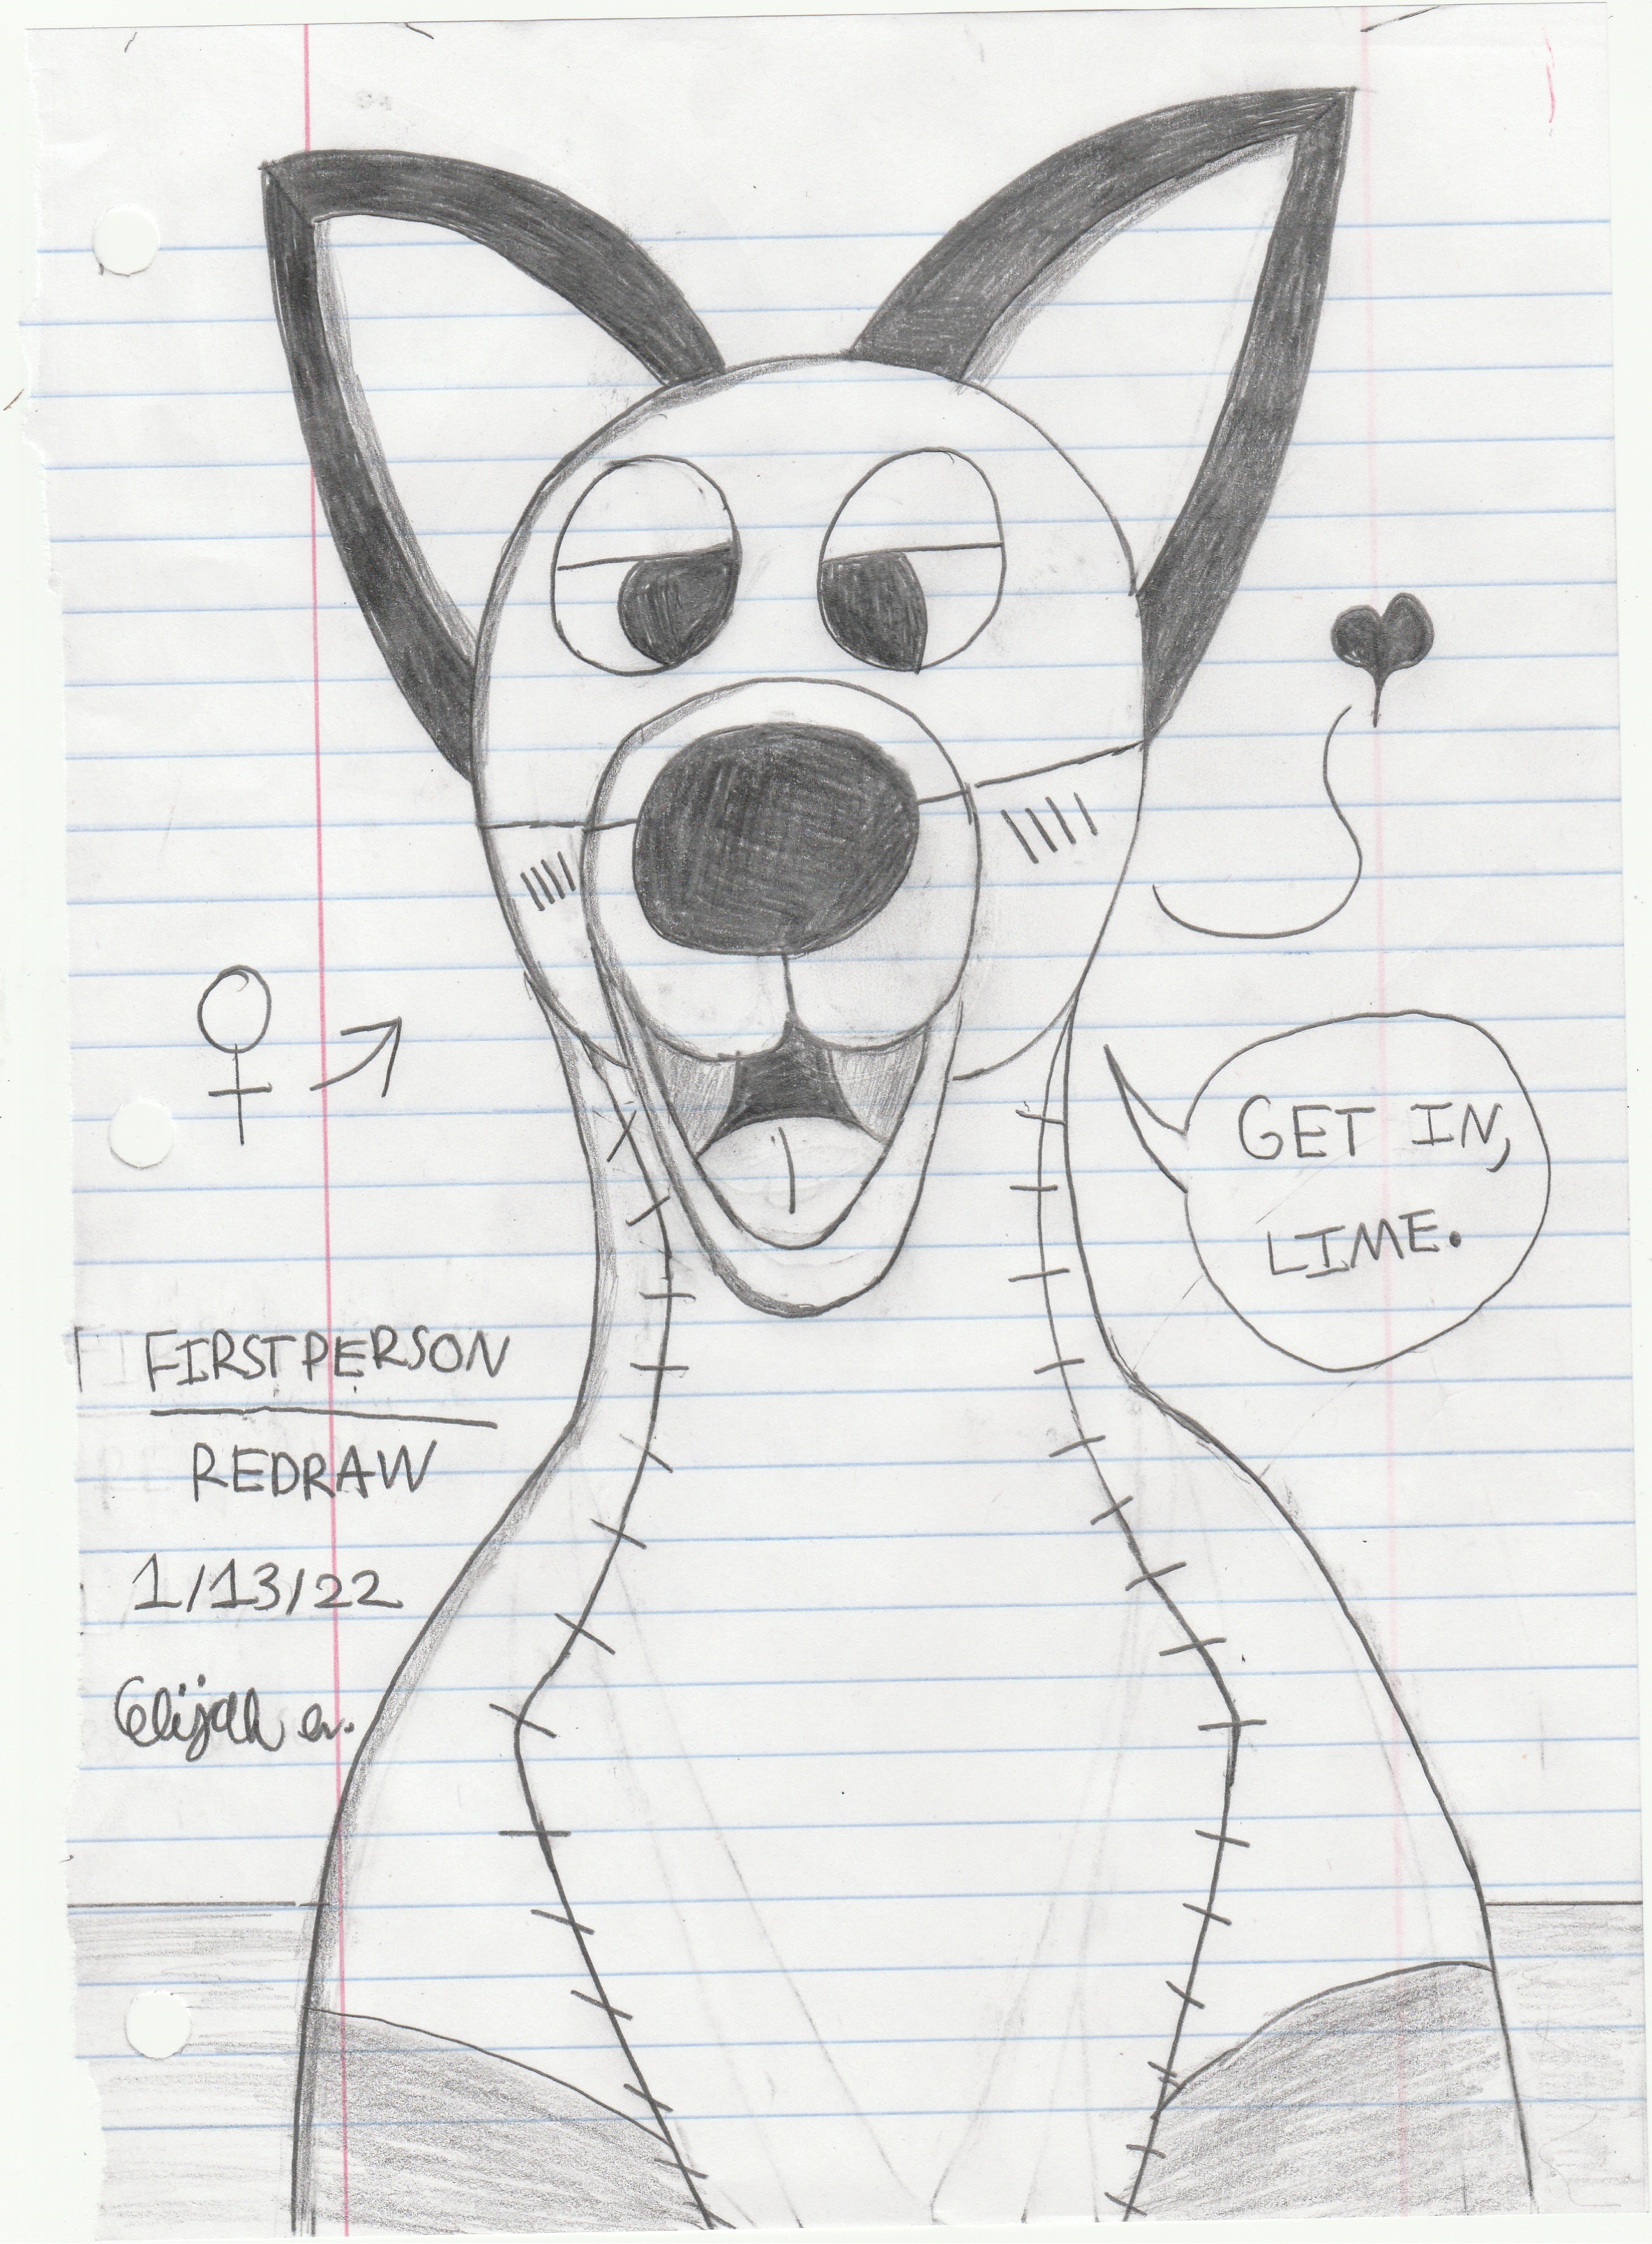 GET IN,
LIME.
FIRSTPERSON
REDRAW
1/13/22
Elijah